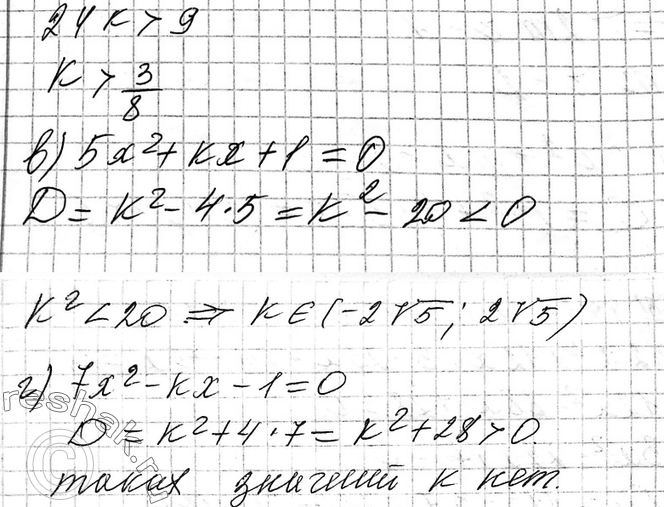 24k > 9
k > 3/8
в) 5x² + kx + 1 = 0
D = k² - 4·5 = k² - 20 < 0
k² < 20 ⇒ k ∈ (-2√5; 2√5)
г) 7x² - kx - 1 = 0
D = k² + 4·7 = k² + 28 > 0.
таких значений k нет.
reshak.ru